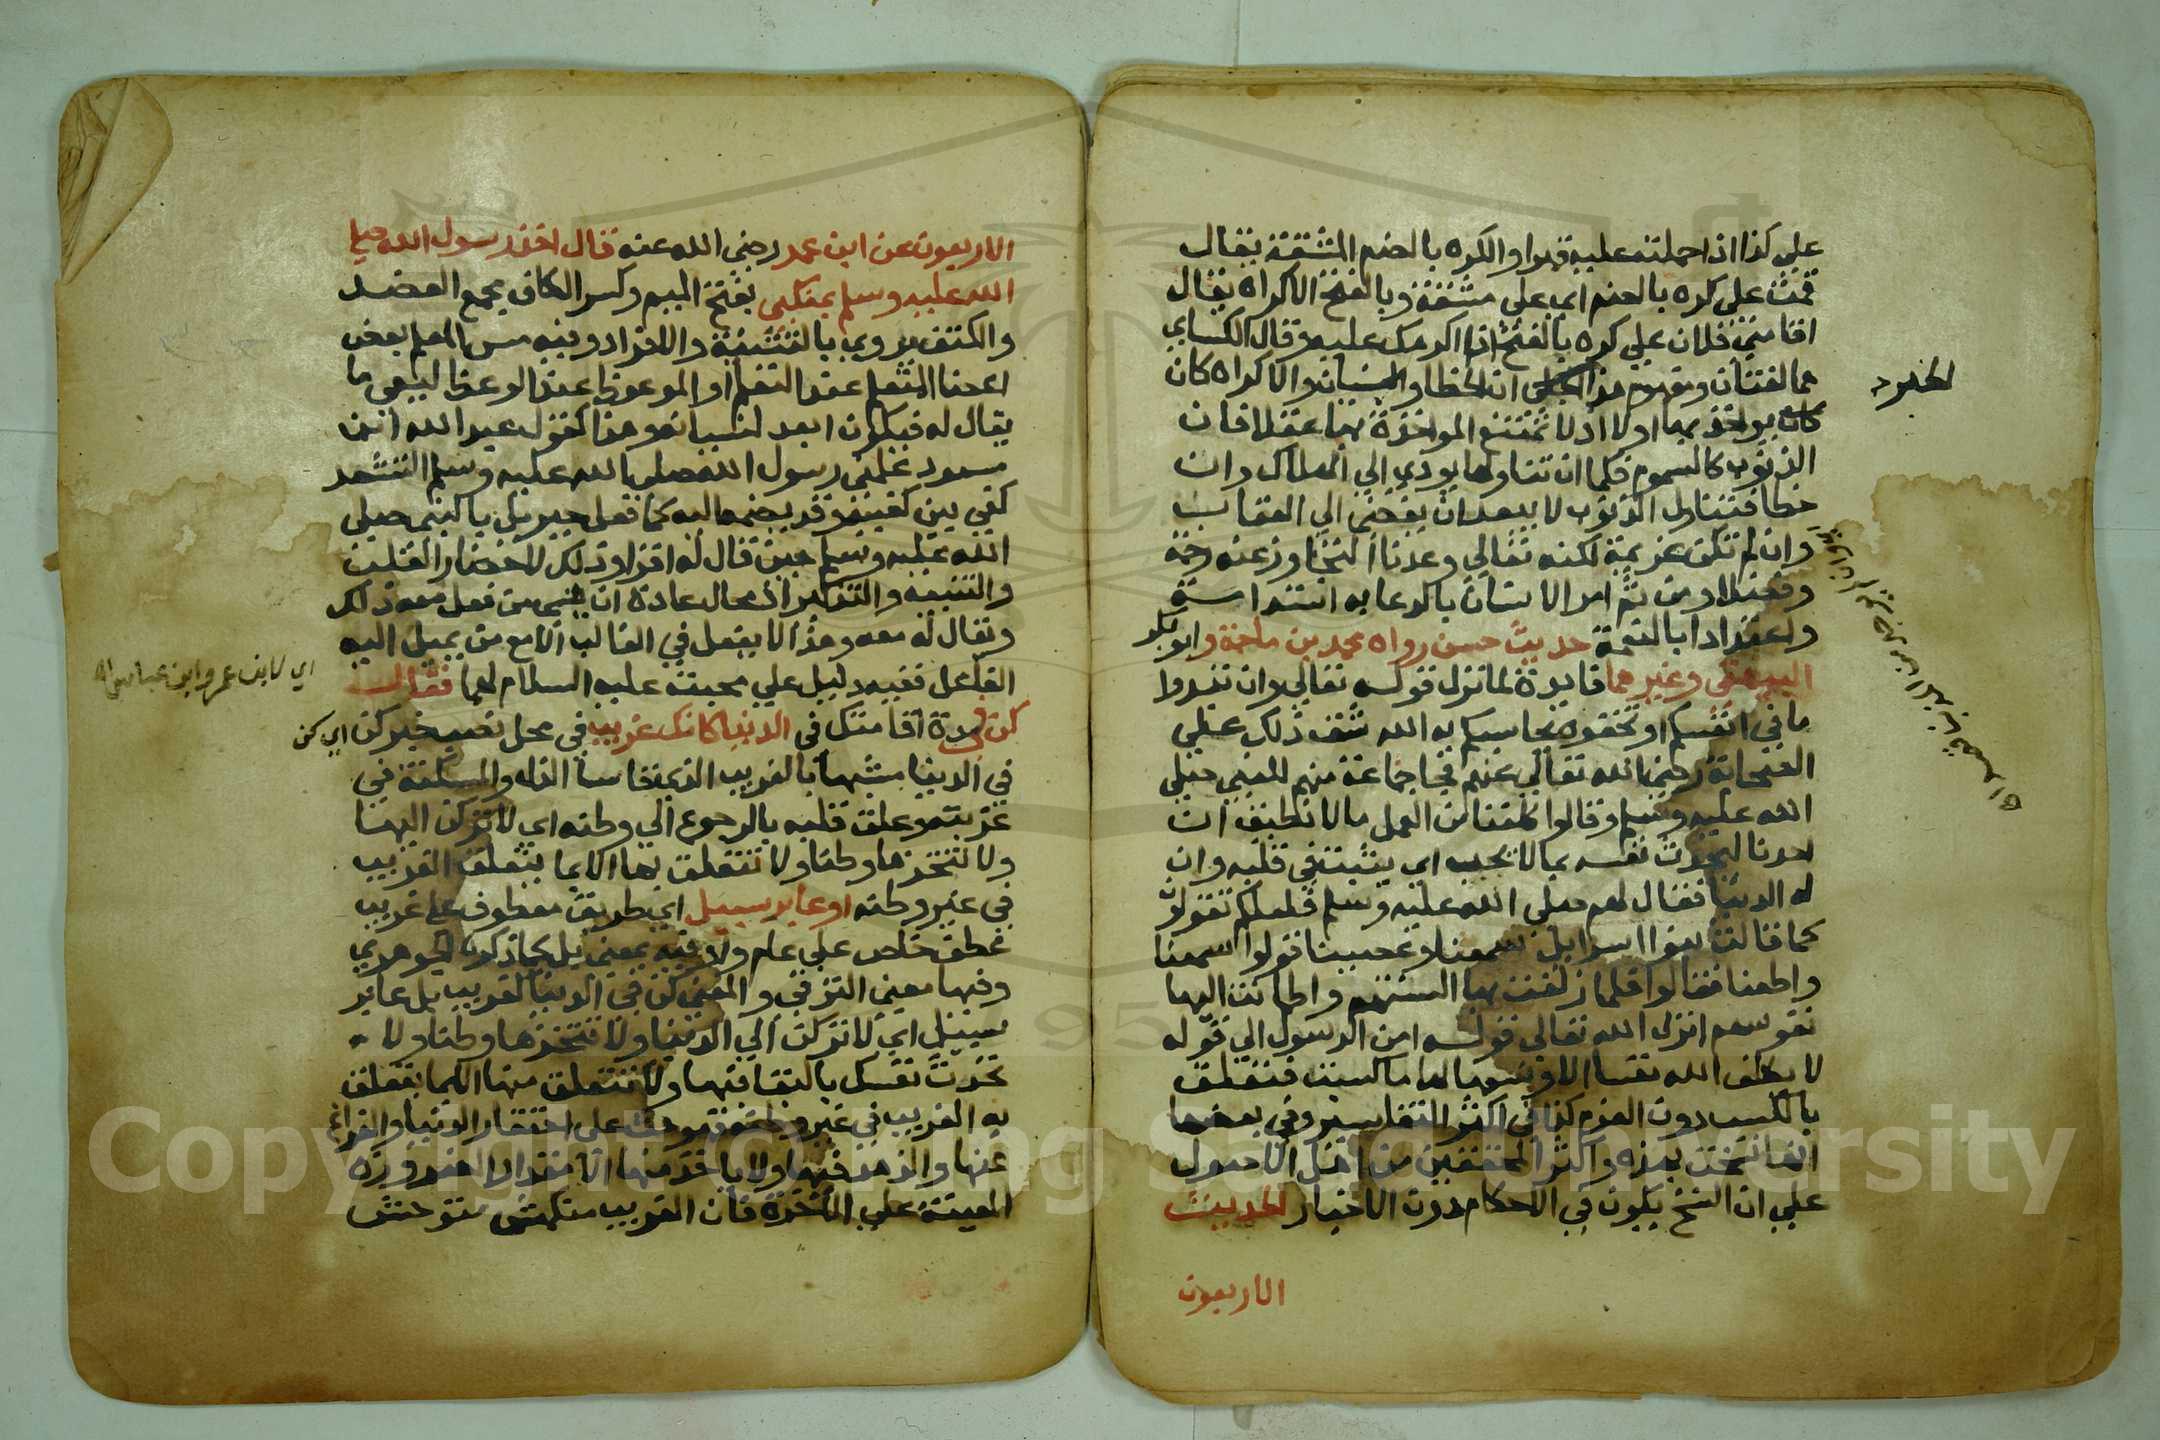 على كذا اذا حملته عليه قهرا والكره بالضم المشقة يقال
قمت على كره بالضم اي على مشقة وبالفتح الاكراه يقال
اقامني فلان على كره بالفتح اذا اكرهك عليه وقال الكساي
هما لغتان ومفهوم هذا ان الخطا والنسيان والاكراه كان
كان يواخذ بها اولا اذ لا تمتنع المواخذة بها عقلا فان
الذنوب كالسموم فكما ان تناولها يودي الي الهلاك وان
خطا فتناول الذنوب لا يبعد ان يفضي الي العقاب
وان لم تكن عزيمة لكنه تعالي وعدنا التجاوز عنه رحمة
وفضلا ومن ثم امر الانسان بالدعا به استدامة
واعتدادا بالنعمة حديث حسن رواه محمد بن ماجة وابو بكر
البيهقي وغيرهما فايدة لما نزل قوله تعالي وان تبدوا
ما في انفسكم او تخفوه يحاسبكم به الله شق ذلك على
الصحابة رضي الله تعالي عنهم فجا جماعة منهم للنبي صلي
الله عليه وسلم وقالوا كلفنا من العمل ما لا نطيق ان
احدنا ليحدث نفسه بما لا يحب اي يثبت في قلبه وان
له الدنيا فقال لهم صلي الله عليه وسلم فلعلكم تقولون
كما قالت بنوا اسرايل سمعنا وعصينا قولوا سمعنا
واطعنا فقالوا فلما زلفت بها السنتهم واطمانت اليها
نفوسهم انزل الله تعالي قوله امن الرسول الي قوله
لا يكلف الله نفسا الا وسعها لها ما كسبت فتعلق
بالكسب دون العزم كذا في اكثر التفاسير وفي بعضها
انها نسخت بهذه واكثر المحققين من اهل الاصول
علي ان النسخ يكون في الاحكام دون الاخبار الحديث
الاربعون
الاربعون عن ابن عمر رضي الله عنه قال اخذ رسول الله صلي
الله عليه وسلم بمنكبي بفتح الميم وكسر الكاف مجمع العضد
والكتف يروي بالتثنية والافراد وفيه مس المعلم بعض
اعضا المتعلم عند التعلم او الموعوظ عند الوعظ ليعي ما
يقال له فيكون ابعد لنسيانه وهذا كقول عبد الله ابن
مسعود علمني رسول الله صلي الله عليه وسلم التشهد
كفي بين كفيه وقد يضمه اليه كما فعل جبريل بالنبي صلي
الله عليه وسلم حين قال له اقرا وذلك لاحضار القلب
والتنبيه والتذكير اذ محال عادة ان ينسي من فعل معه ذلك
ويقال له معه وهذا لا يفعل في الغالب الا مع من يميل اليه
الفاعل ففيه دليل علي محبته عليه السلام لهما فقال
كن مدة اقامتك في الدنيا كانك غريب في محل نصب خبر كن اي كن
في الدنيا مشبها بالغريب الذي قاسا الذل والمسكنة في
غربته وعلق قلبه بالرجوع الي وطنه اي لا تركن اليها
ولا تتخذها وطنا ولا تتعلق بها الا بما يتعلق الغريب
في غير وطنه او عابر سبيل اي طريق معطوف علي غريب
عطف خاص علي عام ولا وفيه بمعني بل كما ذكره الجوهري
وفيها معني الترقي والمعني كن في الدنيا كغريب بل عابر
سبيل اي لا تركن الي الدنيا ولا تتخذها وطنا ولا
تحدث نفسك بالبقا فيها ولا تتعلق منها الا بما يتعلق
به الغريب في غير وطنه وهو حث علي احتقار الدنيا والفراغ
عنها والزهد فيها ولا ياخذ منها الا مقدار الضرورة
المعينة علي الاخرة فان الغريب منكمش متوحش
اي لابن عمر وابن عباس اه